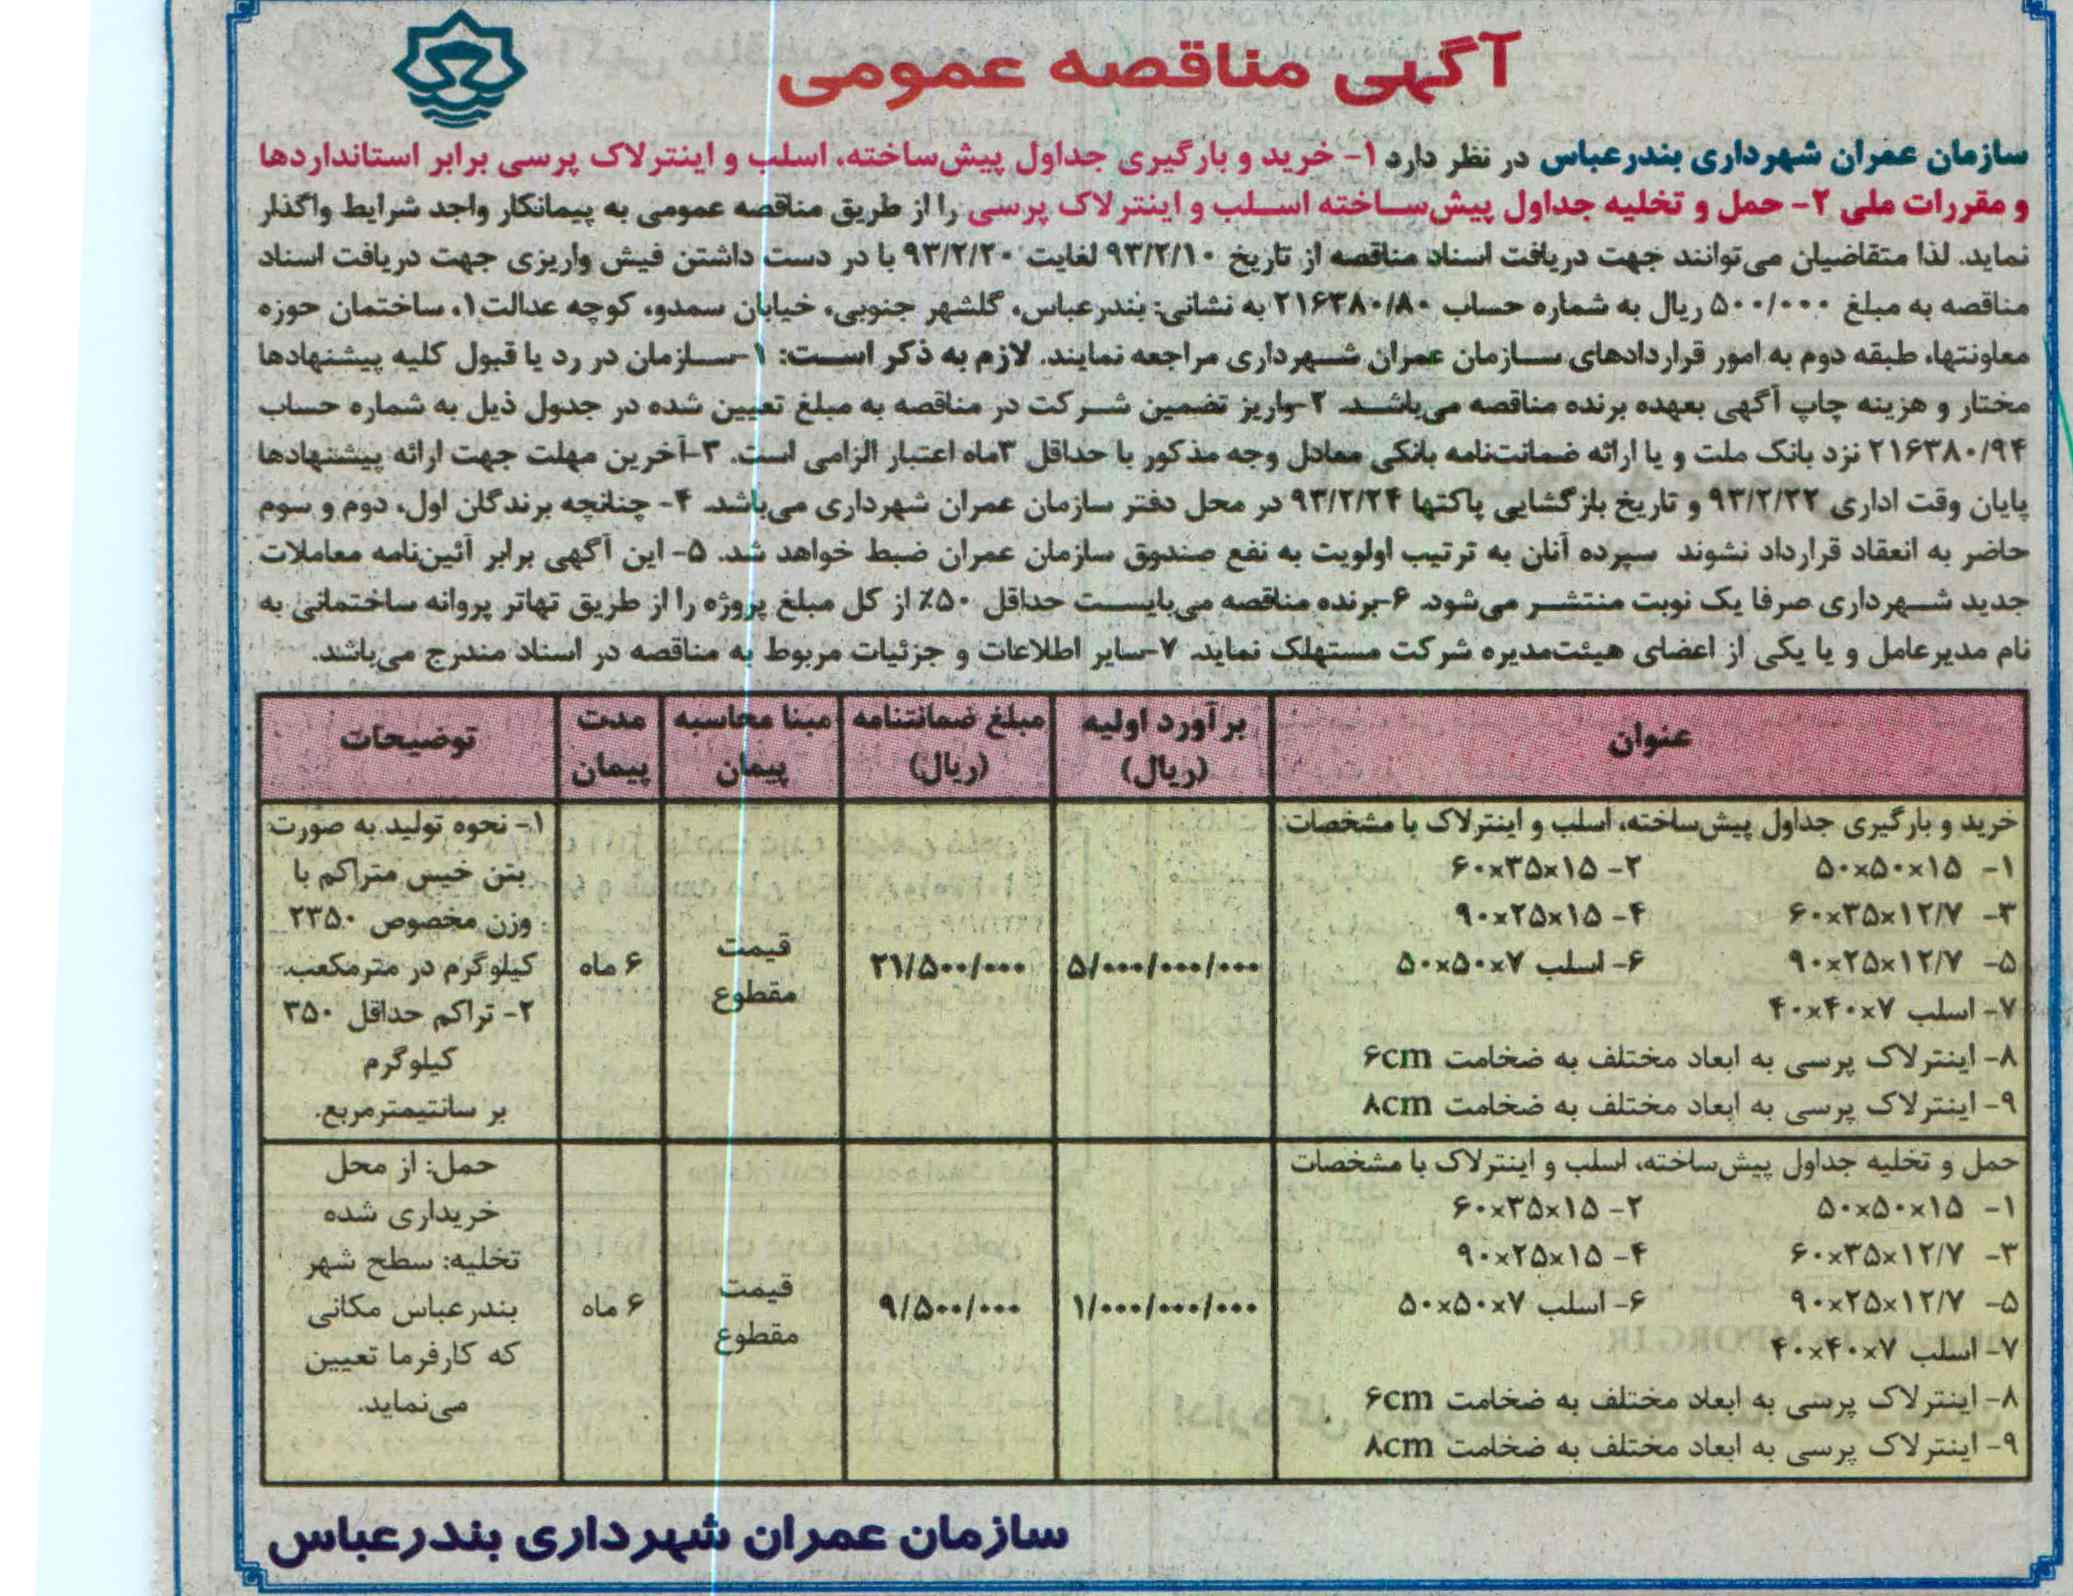 آگهی مناقصه عمومی
سازمان عمران شهرداری بندرعباس در نظر دارد ۱- خرید و بارگیری جداول پیش‌ساخته، اسلب و اینترلاک پرسی برابر استانداردها
و مقررات ملی ۲- حمل و تخلیه جداول پیش‌ساخته اسلب و اینترلاک پرسی را از طریق مناقصه عمومی به پیمانکار واجد شرایط واگذار
نماید. لذا متقاضیان می‌توانند جهت دریافت اسناد مناقصه از تاریخ ۹۳/۲/۱۰ لغایت ۹۳/۲/۲۰ با در دست داشتن فیش واریزی جهت دریافت اسناد
مناقصه به مبلغ ۵۰۰/۰۰۰ ریال به شماره حساب ۲۱۶۳۸۰/۸۰ به نشانی: بندرعباس، گلشهر جنوبی، خیابان سمدو، کوچه عدالت۱، ساختمان حوزه
معاونتها، طبقه دوم به امور قراردادهای سازمان عمران شهرداری مراجعه نمایند. لازم به ذکر است: ۱-سازمان در رد یا قبول کلیه پیشنهادها
مختار و هزینه چاپ آگهی بعهده برنده مناقصه می‌باشد. ۲-واریز تضمین شرکت در مناقصه به مبلغ تعیین شده در جدول ذیل به شماره حساب
۲۱۶۳۸۰/۹۴ نزد بانک ملت و یا ارائه ضمانت‌نامه بانکی معادل وجه مذکور با حداقل ۳ماه اعتبار الزامی است. ۳-آخرین مهلت جهت ارائه پیشنهادها
پایان وقت اداری ۹۳/۲/۲۲ و تاریخ بازگشایی پاکتها ۹۳/۲/۲۴ در محل دفتر سازمان عمران شهرداری می‌باشد. ۴- چنانچه برندگان اول، دوم و سوم
حاضر به انعقاد قرارداد نشوند سپرده آنان به ترتیب اولویت به نفع صندوق سازمان عمران ضبط خواهد شد. ۵- این آگهی برابر آئین‌نامه معاملات
جدید شهرداری صرفا یک نوبت منتشر می‌شود. ۶-برنده مناقصه می‌بایست حداقل ۵۰٪ از کل مبلغ پروژه را از طریق تهاتر پروانه ساختمانی به
نام مدیرعامل و یا یکی از اعضای هیئت‌مدیره شرکت مستهلک نماید. ۷-سایر اطلاعات و جزئیات مربوط به مناقصه در اسناد مندرج می‌باشد.
عنوان
برآورد اولیه
(ریال)
مبلغ ضمانتنامه
(ریال)
مبنا محاسبه
پیمان
مدت
پیمان
توضیحات
خرید و بارگیری جداول پیش‌ساخته، اسلب و اینترلاک با مشخصات
۱- ۵۰×۵۰×۱۵ ۲- ۶۰×۳۵×۱۵
۳- ۶۰×۳۵×۱۲/۷ ۴- ۹۰×۲۵×۱۵
۵- ۹۰×۲۵×۱۲/۷ ۶- اسلب ۵۰×۵۰×۷
۷- اسلب ۴۰×۴۰×۷
۸- اینترلاک پرسی به ابعاد مختلف به ضخامت ۶cm
۹- اینترلاک پرسی به ابعاد مختلف به ضخامت ۸cm
۵/۰۰۰/۰۰۰/۰۰۰
۲۱/۵۰۰/۰۰۰
قیمت
مقطوع
۶ ماه
۱- نحوه تولید به صورت
بتن خیس متراکم با
وزن مخصوص ۲۳۵۰
کیلوگرم در مترمکعب.
۲- تراکم حداقل ۳۵۰
کیلوگرم
بر سانتیمترمربع.
حمل و تخلیه جداول پیش‌ساخته، اسلب و اینترلاک با مشخصات
۱- ۵۰×۵۰×۱۵ ۲- ۶۰×۳۵×۱۵
۳- ۶۰×۳۵×۱۲/۷ ۴- ۹۰×۲۵×۱۵
۵- ۹۰×۲۵×۱۲/۷ ۶- اسلب ۵۰×۵۰×۷
۷- اسلب ۴۰×۴۰×۷
۸- اینترلاک پرسی به ابعاد مختلف به ضخامت ۶cm
۹- اینترلاک پرسی به ابعاد مختلف به ضخامت ۸cm
۱/۰۰۰/۰۰۰/۰۰۰
۹/۵۰۰/۰۰۰
قیمت
مقطوع
۶ ماه
حمل: از محل
خریداری شده
تخلیه: سطح شهر
بندرعباس مکانی
که کارفرما تعیین
می‌نماید.
سازمان عمران شهرداری بندرعباس